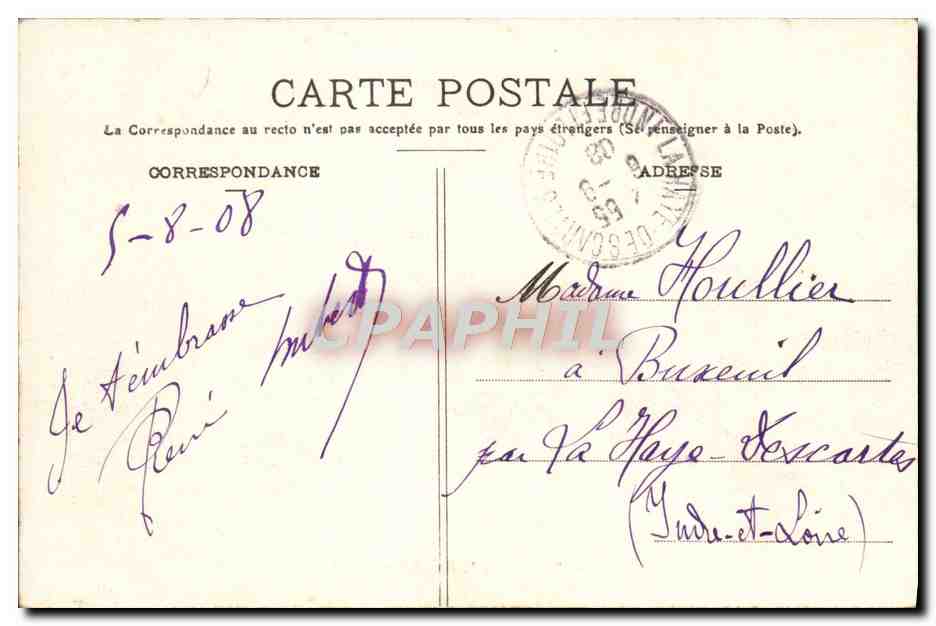 CARTE POSTALE
La Correspondance au recto n'est pas acceptée par tous les pays étrangers (Se renseigner à la Poste).
CORRESPONDANCE
5-8-08
Je t'embrasse
René
ADRESSE
LA HAYE-DESCARTES INDRE ET LOIRE
08
Madame Houllier
à Buxeuil
par La Haye-Descartes
(Indre-et-Loire)
CPAPHIL